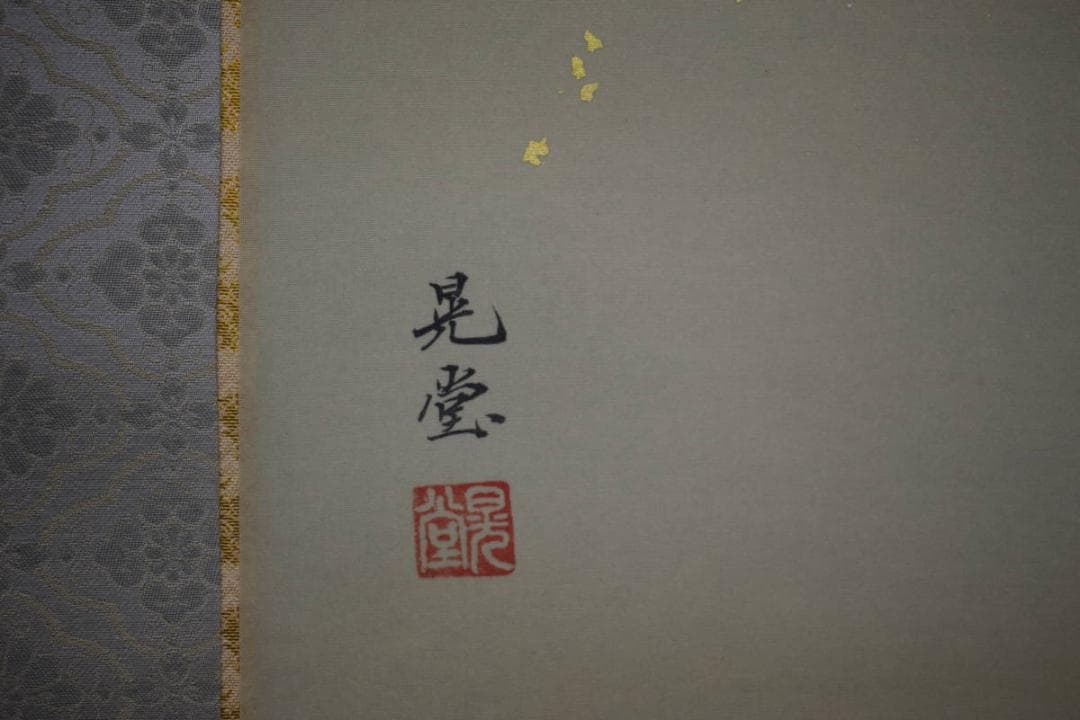 晃堂
晃堂